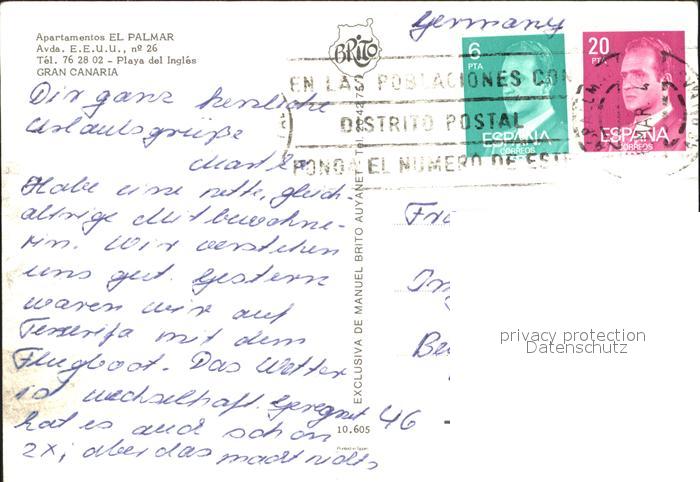 Apartamentos EL PALMAR
Avda. E.E.U.U., nº 26
Tél. 76 28 02 - Playa del Inglés
GRAN CANARIA
BRITO
Germany
6
PTA
ESPAÑA
CORREOS
20
PTA
ESPAÑA
CORREOS
EN LAS POBLACIONES CON
DISTRITO POSTAL
PONGA EL NUMERO DE ESTE
MAR
Dir ganz herzliche
Urlaubsgrüße
Habe eine nette, gleich-
altrige Mitbewohne-
rin. Wir verstehen
uns gut. Gestern
waren wir auf
Teneriffa mit dem
Flugboot. Das Wetter
ist wechselhaft. Geregnet
hat es auch schon
2x, aber das macht nichts
EXCLUSIVA DE MANUEL BRITO AUYANET
10.605
Printed in Spain
Fr
Be
46
privacy protection
Datenschutz